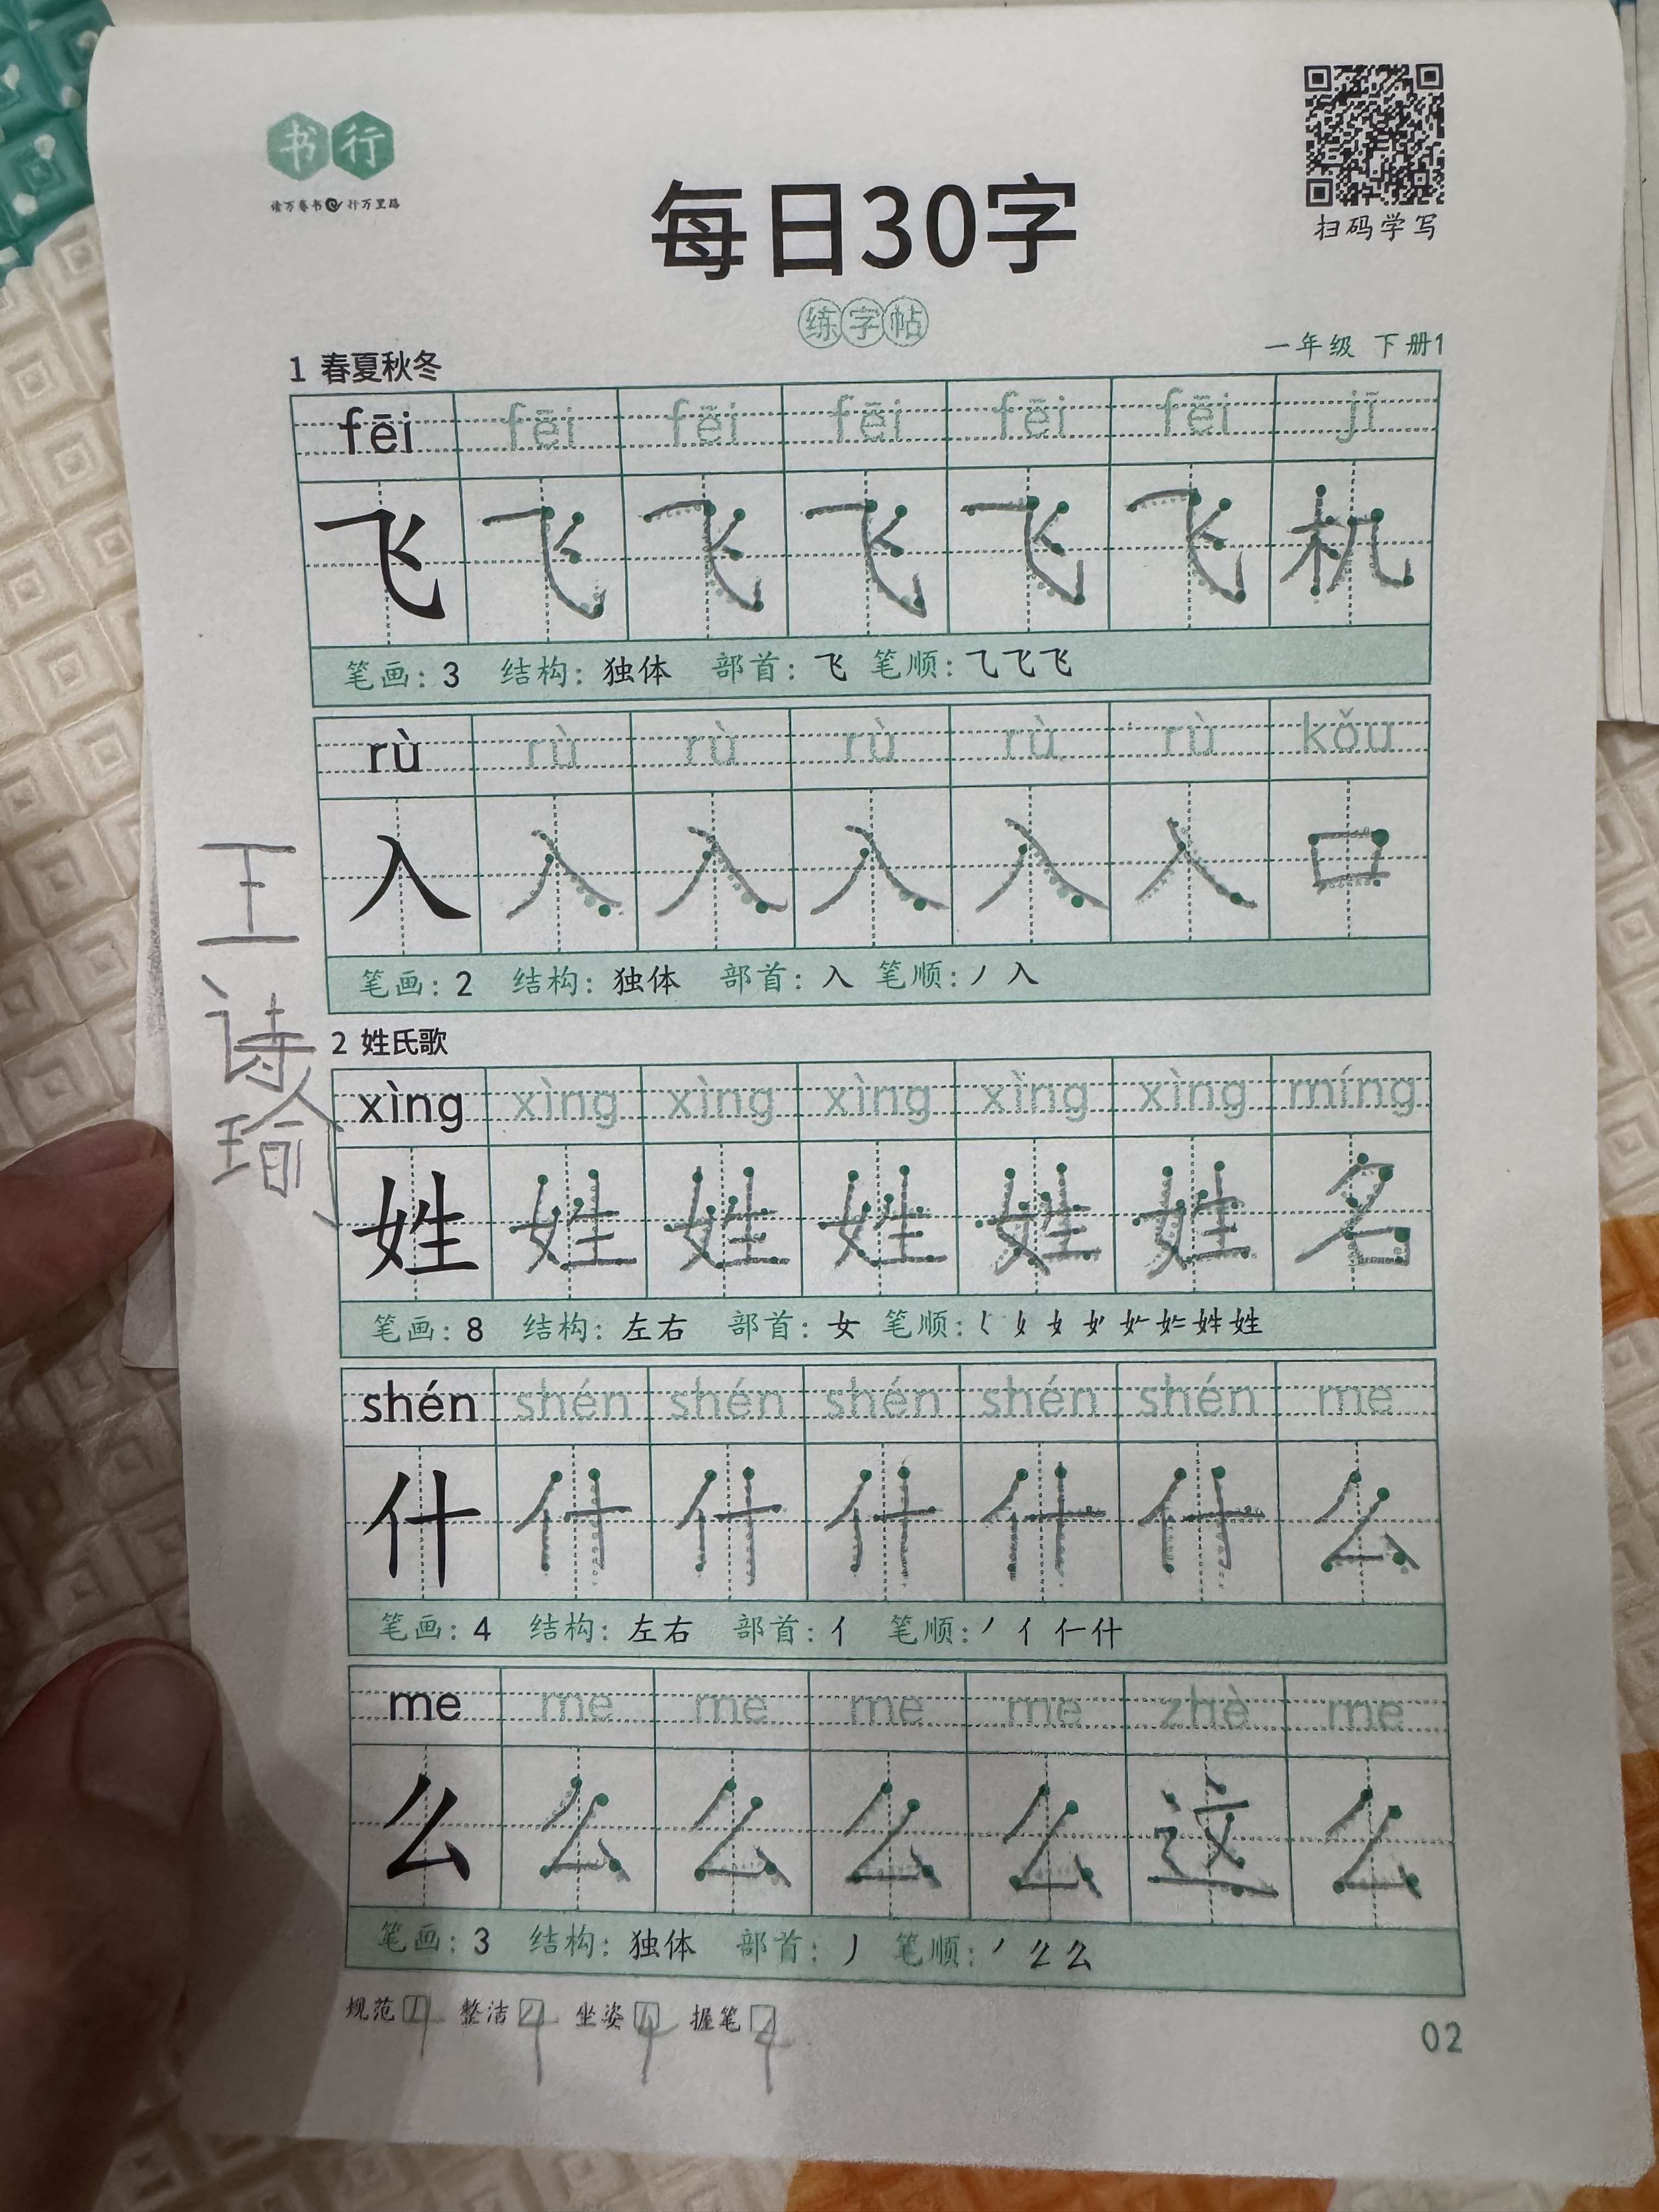 书行
读万卷书 行万里路
扫码学写
每日30字
练字帖
一年级 下册1
1 春夏秋冬
fēi fēi fēi fēi fēi fēi jī
飞 飞 飞 飞 飞 飞 机
笔画：3 结构：独体 部首：飞 笔顺：⺄飞飞
rù rù rù rù rù rù kǒu
入 入 入 入 入 入 口
笔画：2 结构：独体 部首：入 笔顺：丿入
王
诗
瑜
2 姓氏歌
xìng xìng xìng xìng xìng xìng míng
姓 姓 姓 姓 姓 姓 名
笔画：8 结构：左右 部首：女 笔顺：姓
shén shén shén shén shén shén me
什 什 什 什 什 什 么
笔画：4 结构：左右 部首：亻 笔顺：丿亻仁什
me me me me me zhè me
么 么 么 么 么 这 么
笔画：3 结构：独体 部首：丿 笔顺：丿么么
规范 整洁 坐姿 握笔
02